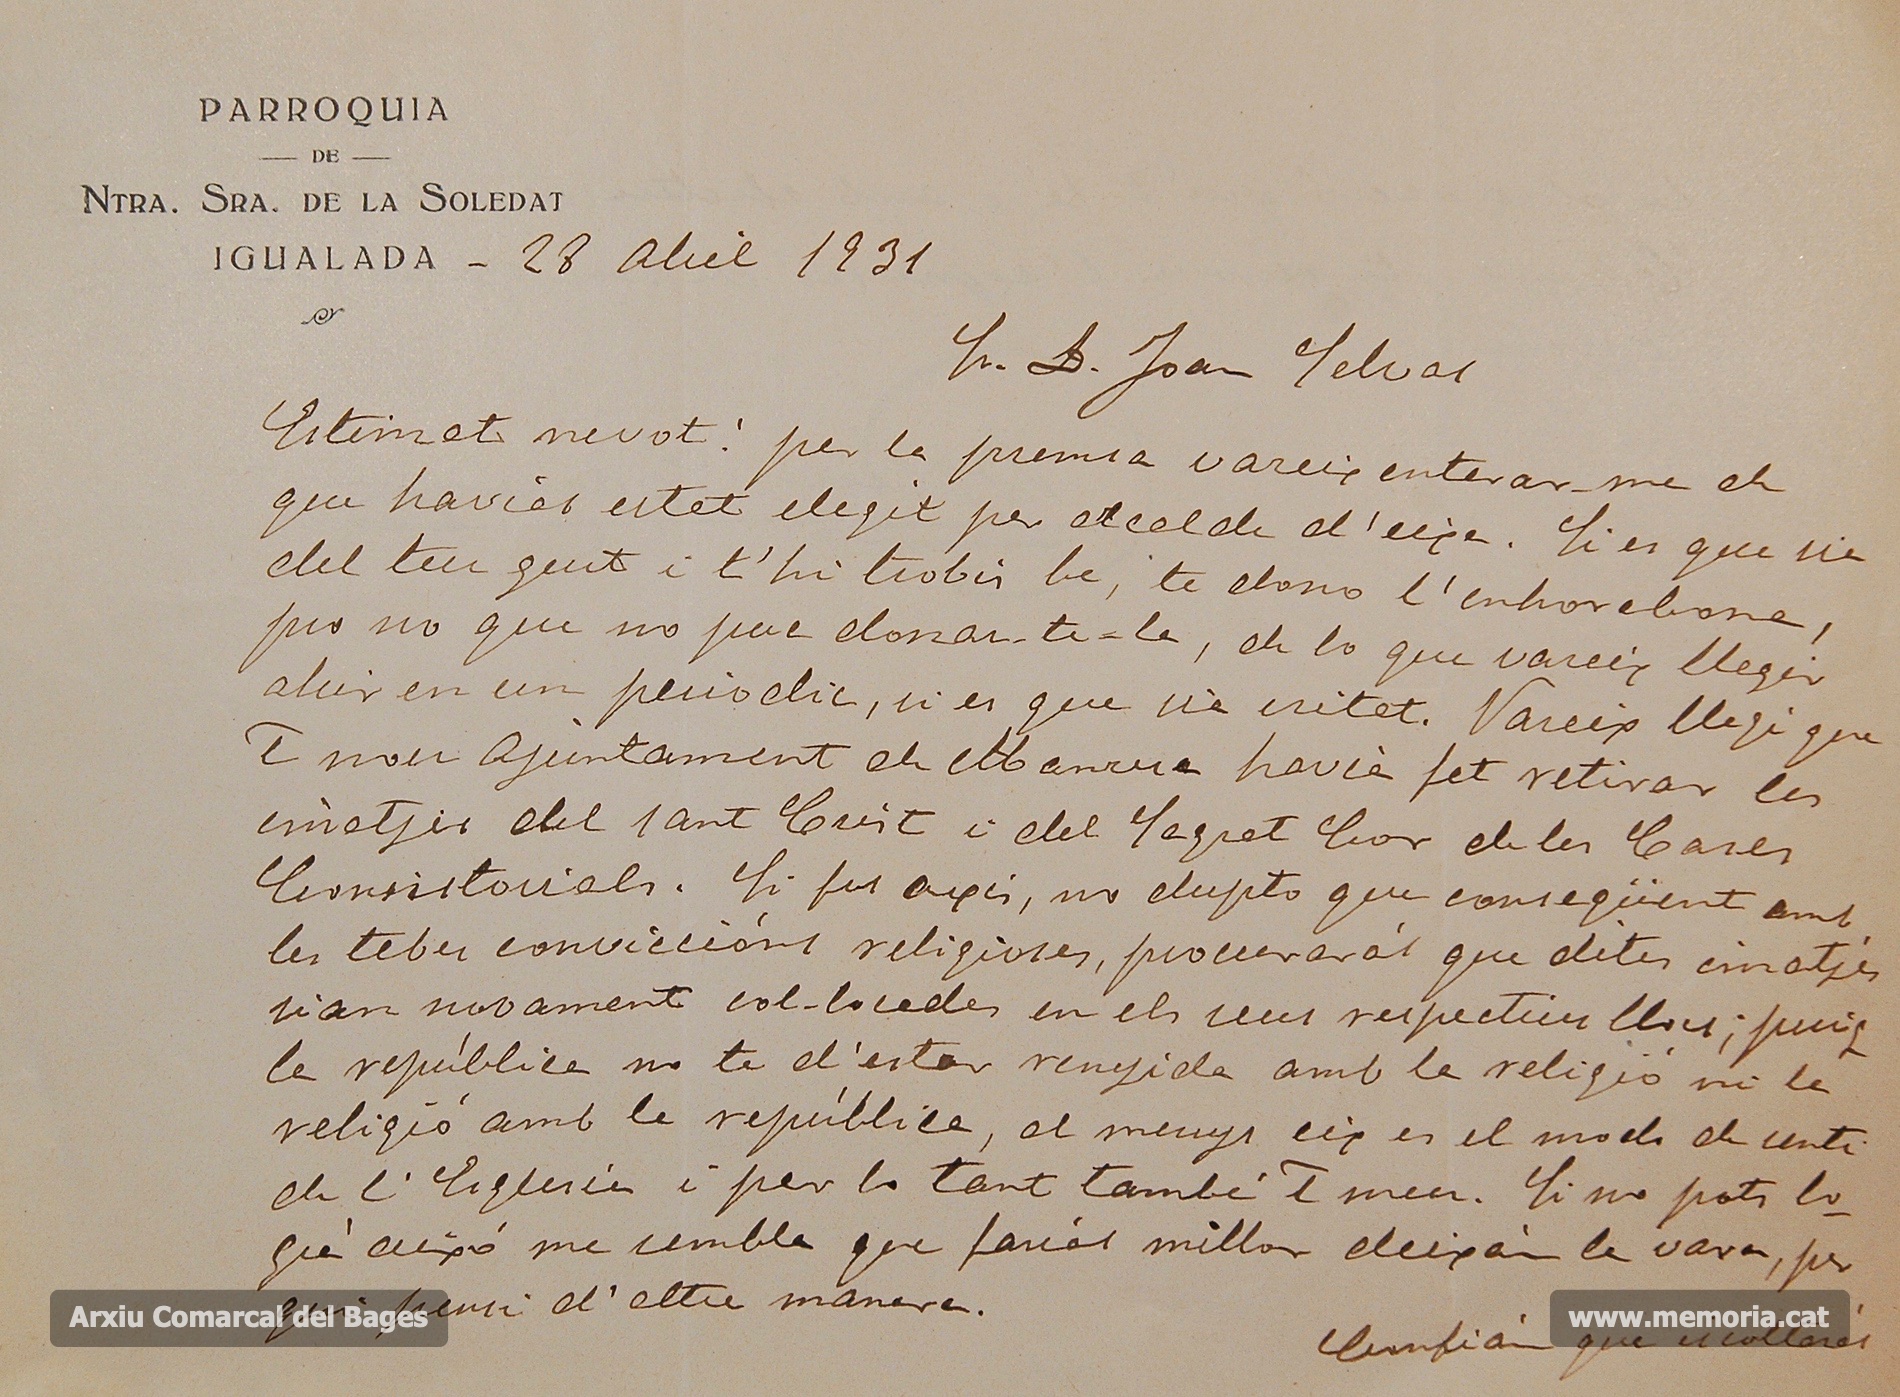 PARROQUIA
DE
NTRA. SRA. DE LA SOLEDAT
IGUALADA - 28 Abril 1931
Sr. D. Joan Selvas
Estimat nevot: per la premsa vareix enterar-me de
que havies estat elegit per alcalde d'eixa. Si es que sia
del teu gust i t'hi trobis be, te dono l'enhorabona,
pro no que no puc donar-te-la, de lo que vareix llegir
ahir en un periodic, si es que sia vritat. Vareix llegi que
'l nou Ajuntament de Manresa havia fet retirar les
imatjes del sant Crist i del Sagrat Cor de les Cases
Consistorials. Si fos axis, no dupto que conseqüent amb
les teves conviccións religioses, procurarás que dites imatjes
sian novament col-locades en els seus respectius llocs; puig
la república no te d'estar renyida amb la religió ni la
religió amb la república, al menys eix es el modo de senti
de l'Esglesia i per lo tant també 'l meu. Si no pots lo-
grá aixó me sembla que farias millor deixán la vara, per
qui pensi d'altre manera.
Confián que escollarás
Arxiu Comarcal del Bages
www.memoria.cat